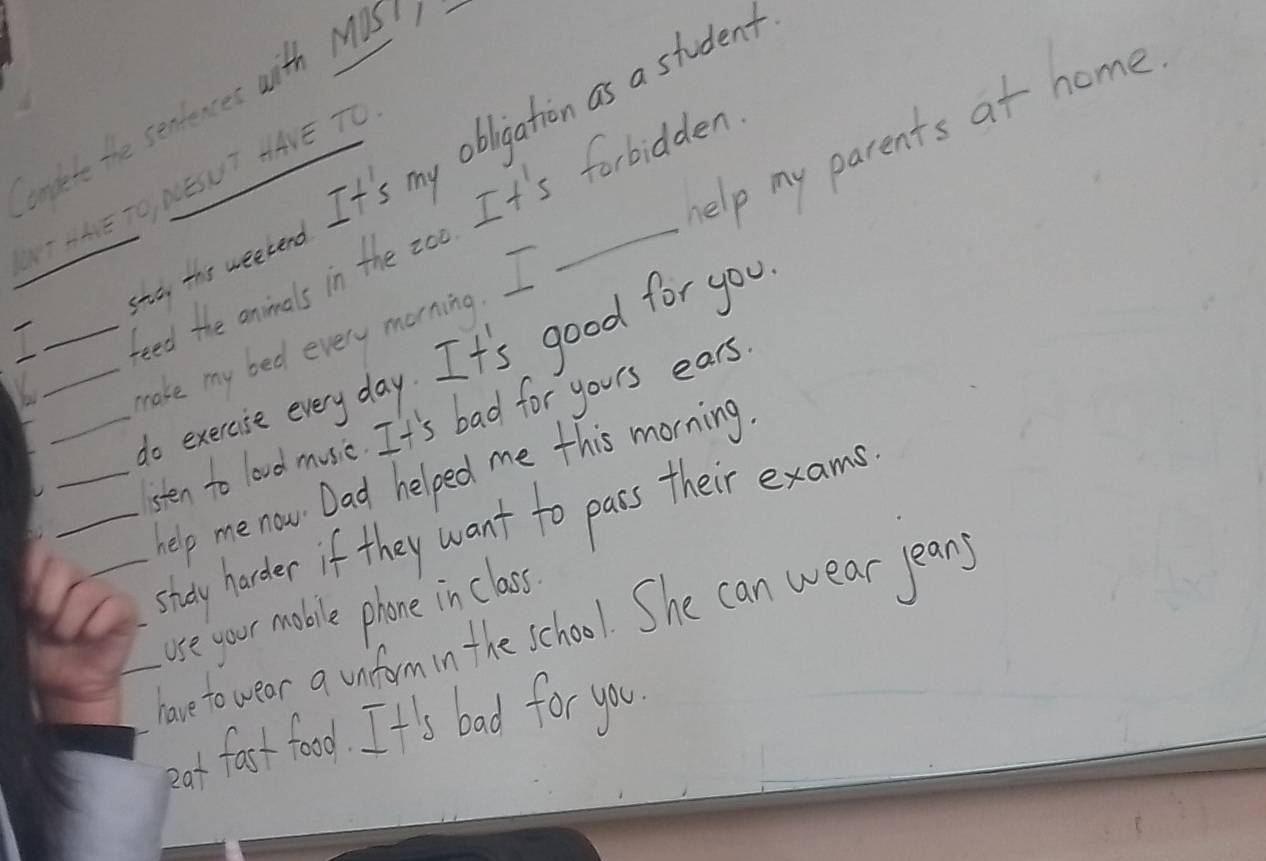 Complete the sentences with MUST,
DON'T HAVE TO, DOESN'T HAVE TO.
I ____ study this weekend. It's my obligation as a student.
You ____ feed the animals in the zoo. It's forbidden.
I ____ make my bed every morning. I ____ help my parents at home.
____ do exercise every day. It's good for you.
____ listen to loud music. It's bad for yours ears.
____ help me now. Dad helped me this morning.
study harder if they want to pass their exams.
__ use your mobile phone in class.
have to wear a uniform in the school. She can wear jeans
eat fast food. It's bad for you.